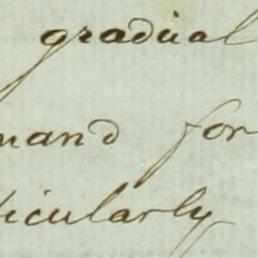 gradual
mand for
ticularly